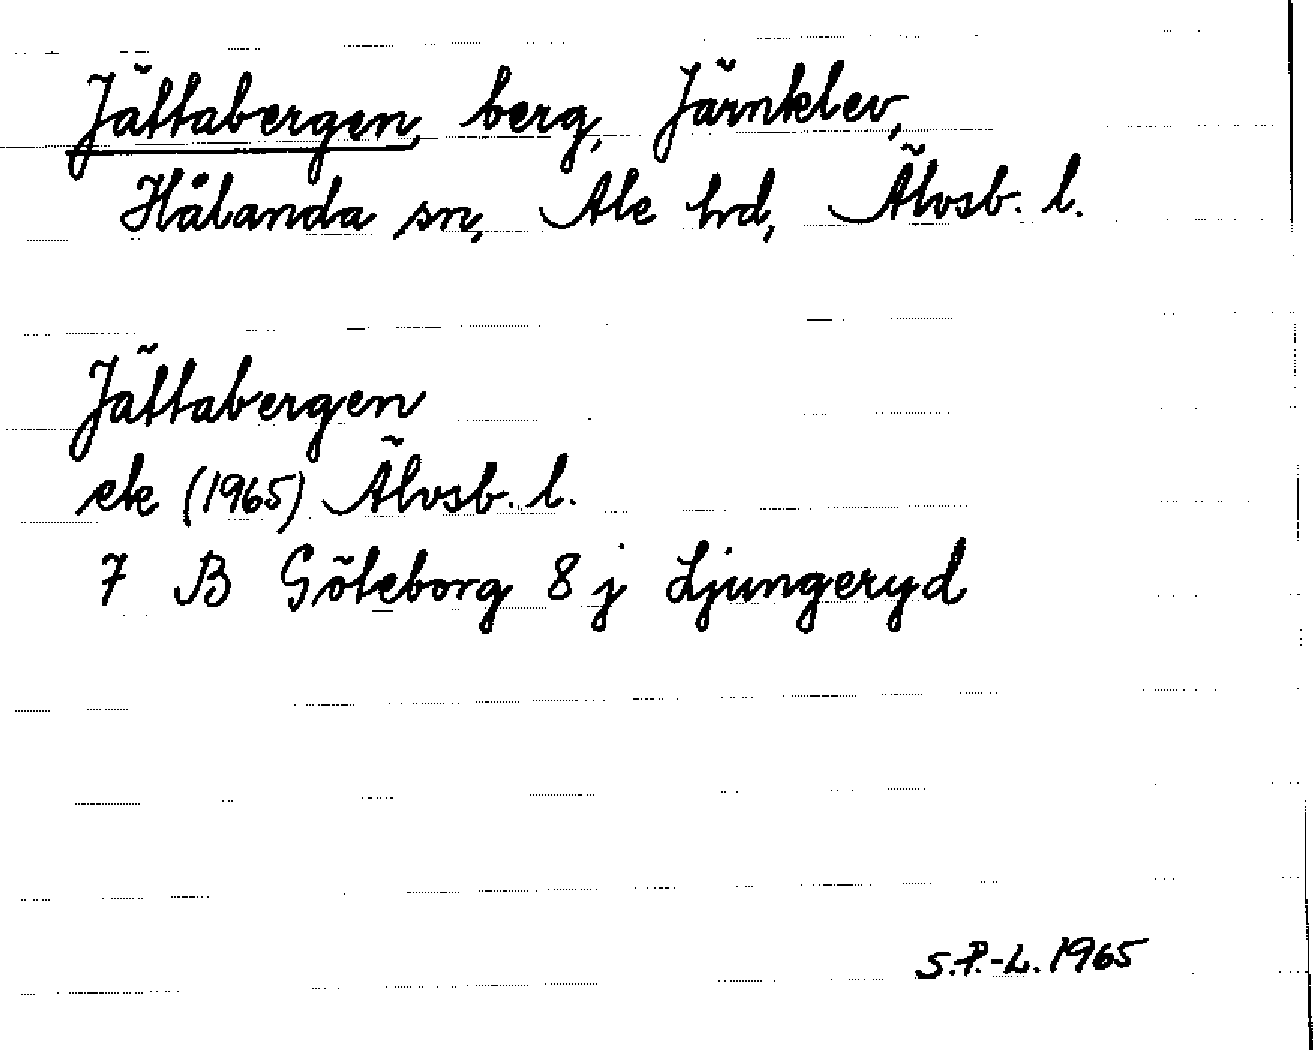 Jättabergen, berg, Järnklev,
Hålanda sn, Ale hd, Älvsb. l.
Jättabergen
ek (1965) Älvsb. l.
7 B Göteborg 8 j Ljungeryd
S.P.-L. 1965